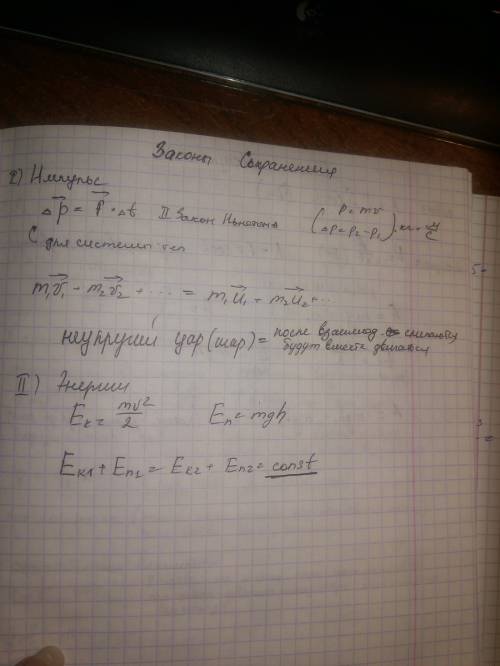 Законы Сохранения
I) Импульс
Δp = F · Δt II Закон Ньютона (p = mv Δp = p2 - p1) · кг · м/с
С для системы тел
m1v1 + m2v2 + ... = m1u1 + m2u2 + ...
неупругий удар (шар) = после взаимод. слипаются
будут вместе двигаться
II) Энергии
Eк = mv²/2 Eп = mgh
Eк1 + Eп1 = Eк2 + Eп2 = const